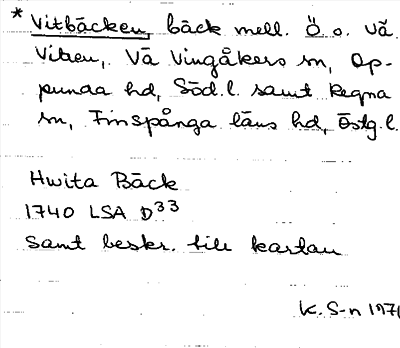 * Vitbäcken, bäck mell. Ö. o. Vä.
Viken, Vä Vingåkers sn, Op-
punda hd, Söd.l. samt Regna
sn, Finspånga läns hd, Östg.l.
Hwita Bäck
1740 LSA D33
samt beskr. till kartan
K. S-n 1971